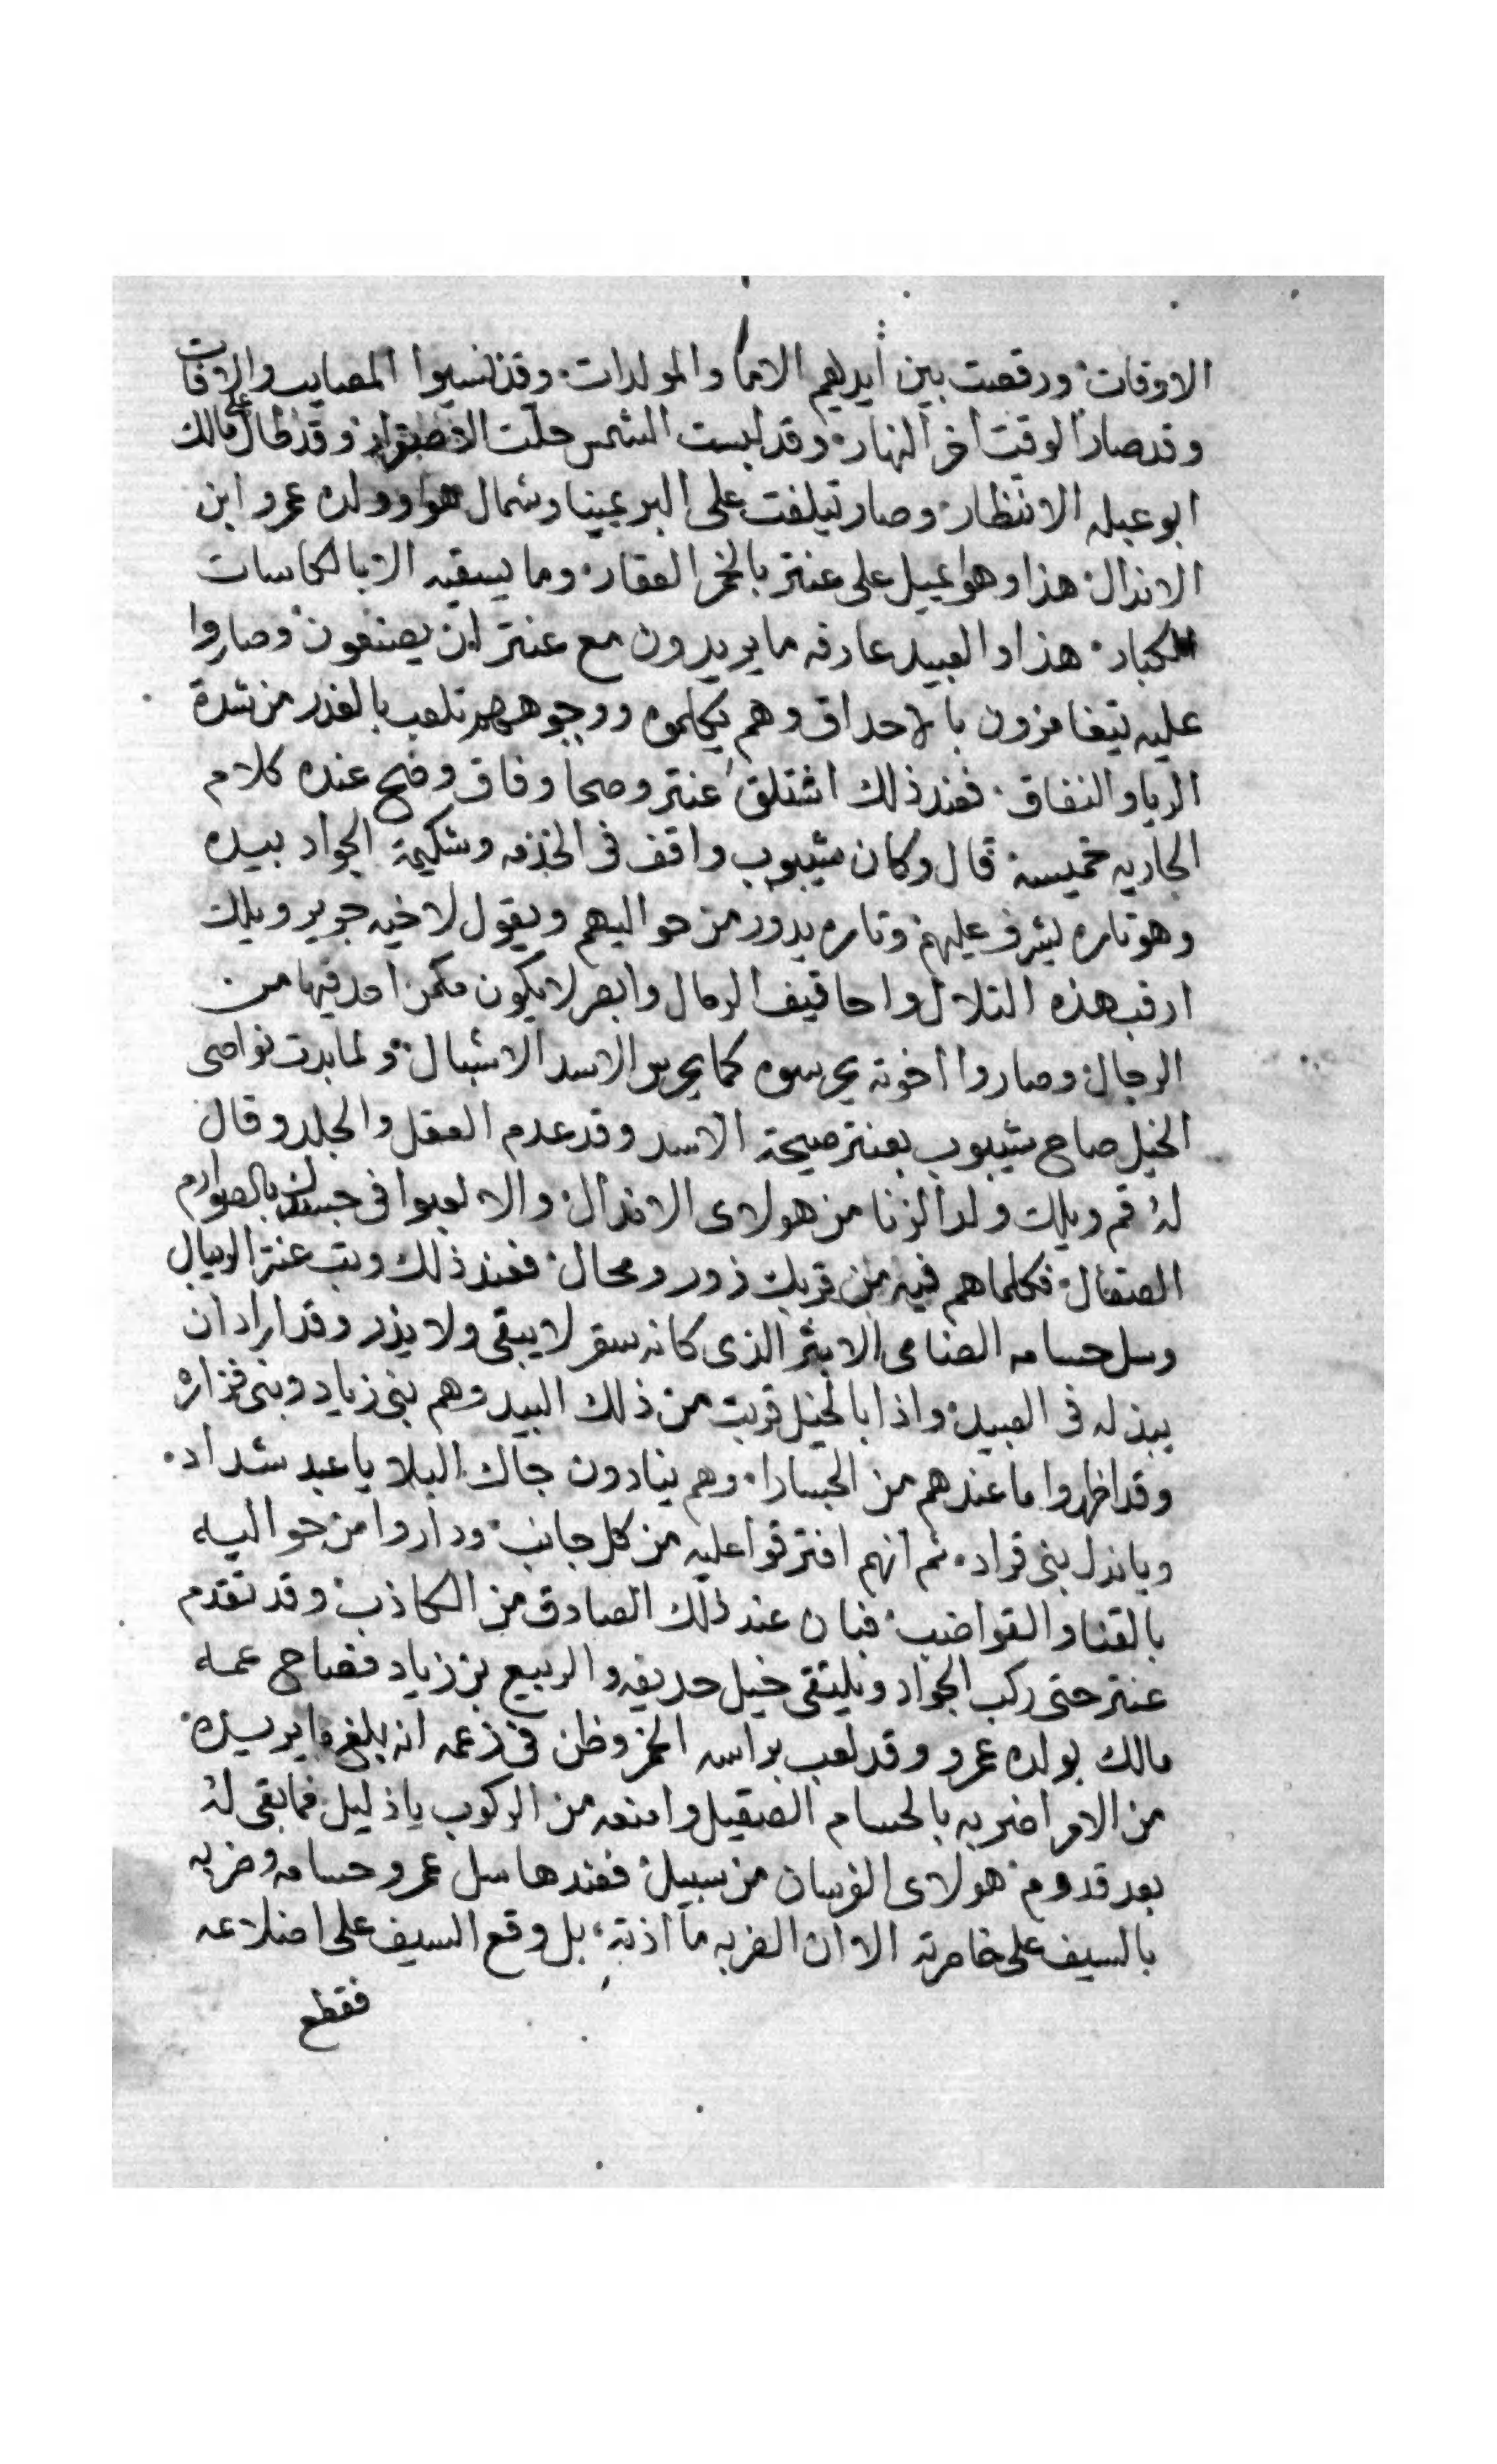 الاوقات ورقصت بين أيديهم الاما والمولدات وقد نسيوا المصايب والافات
وقد صار الوقت اخر النهار وقد لبست الشمس حلت الاصفرار وقد طال على مالك
ابو عبله الانتظار وصار تيلفت على البر يمينا وشمال هوا وولده عمرو ابن
الاندال هذا وهوا يميل على عنتر بالخمر العقار وما يسقيه الا بالكاسات
الكبار هذا والعبيد عارفه ما يريدون مع عنتر ان يصنعون وصاروا
عليه تيغامزون بالاحداق وهم يكلموه ووجوههم تلعب بالغدر من شدة
الريا والنفاق فعند ذلك اشتلق عنتر وصحا وفاق وفتح عنده كلام
الجاريه خميسة قال وكان شيبوب واقف فى الخدمه وشكيمة الجواد بيده
وهو تاره يشرف عليهم وتاره يدور من حواليهم ويقول لاخيه جرير ويلك
ارقب هذه التلال واحاقيف الرمال وابصر لا يكون مكمن احد فيها من
الرجال وصاروا اخوته يحرسوه كما يحرس الاسد الاشبال ولما بدت نواصى
الخيل صاح شيبوب بعنتر صيحة الاسد وقد عدم العقل والجلد وقال
له قم ويلك ولد الزنا من هولاى الاندال والا لعبوا فى جسدك بالصوارم
الصقال فكلما هم فيه من قربك زور ومحال فعند ذلك وثب عنتر الريبال
وسل حسامه الضامى الابتر الذى كانه سقر لا يبقى ولا يذر وقد اراد ان
يبذله فى العبيد واذا بالخيل قربت من ذلك البيد وهم بنى زياد وبنى فزاره
وقد اظهروا ما عندهم من الجسارا وهم ينادون جاك البلا يا عبد شداد
ويا نذل بنى قراد ثم انهم افترقوا عليه من كل جانب وداروا من حواليه
بالقنا والقواضب فبان عند ذلك الصادق من الكاذب وقد تقدم
عنتر حتى ركب الجواد ويلتقى خيل حديفه والربيع بن زياد فصاح عمه
مالك بولده عمرو وقد لعب براسه الخمر وظن فى زعمه انه بلغ ما يريده
من الامر اضربه بالحسام الصقيل وامنعه من الركوب يا ذليل فما بقى له
بعد قدوم هولاى الفرسان من سبيل فعندها سل عمرو حسامه وضربه
بالسيف على خاصرته الا ان الضربه ما اذته بل وقع السيف على اضلاعه
فقطع